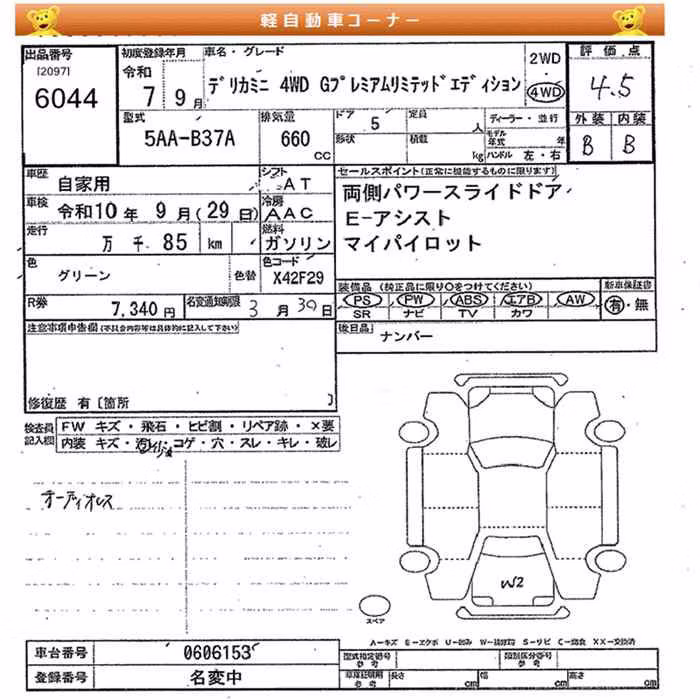 軽自動車コーナー
出品番号
[2097]
6044
初度登録年月
令和
7 9月
車名・グレード
デリカミニ 4WD Gプレミアムリミテッドエディション
2WD
4WD
評価点
4.5
外装 内装
B B
型式
5AA-B37A
排気量
660
CC
ドア
5
定員
人
形状
積載
kg
ディーラー・並行
モデル年式 年
ハンドル 左・右
車歴
自家用
シフト
AT
車検
令和10年 9月(29日)
冷房
AAC
走行
万 千 85 km
燃料
ガソリン
色
グリーン
色替
色コード
X42F29
R券
7,340円
名変通知期限
3月30日
セールスポイント(正常に機能するものに限ります)
両側パワースライドドア
E-アシスト
マイパイロット
装備品(純正品に限り○をつけてください)
PS PW ABS エアB AW
SR ナビ TV カワ
新車保証書
有・無
後日品
ナンバー
注意事項申告欄(不具合内容等は具体的に記入して下さい)
修復歴 有〔箇所 〕
検査員記入欄
FW キズ・飛石・ヒビ割・リペア跡・×要
内装 キズ・汚レ・コゲ・穴・スレ・キレ・破レ
オーディオレス
W2
スペア
A-キズ E-エクボ U-凹み W-補修跡 S-サビ C-腐食 XX-交換済
車台番号
0606153
登録番号
名変中
型式指定番号
参考
類別区分番号
参考
車庫証明用
参考
長さ cm
幅 cm
高さ cm